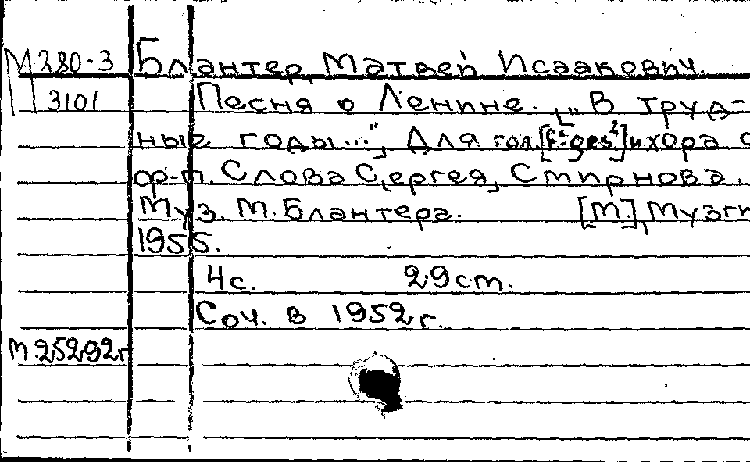 М 280-3 Блантер, Матвей Исаакович.
3101 Песня о Ленине. ["В труд-
ные годы..."], Для гол. [f¹-ges²] и хора с
ф-п. Слова С[ергея] Смирнова.
Муз. М. Блантера. [М], Музги
1955.
4с. 29cm.
Соч. в 1952 г.
М 25292г